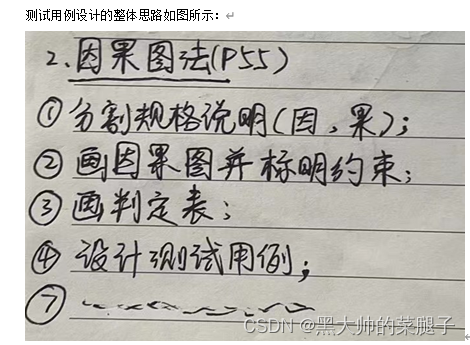 测试用例设计的整体思路如图所示：
2.因果图法(P55)
①分割规格说明(因,果);
②画因果图并标明约束;
③画判定表;
④设计测试用例;
⑦
CSDN @黑大帅的菜腿子